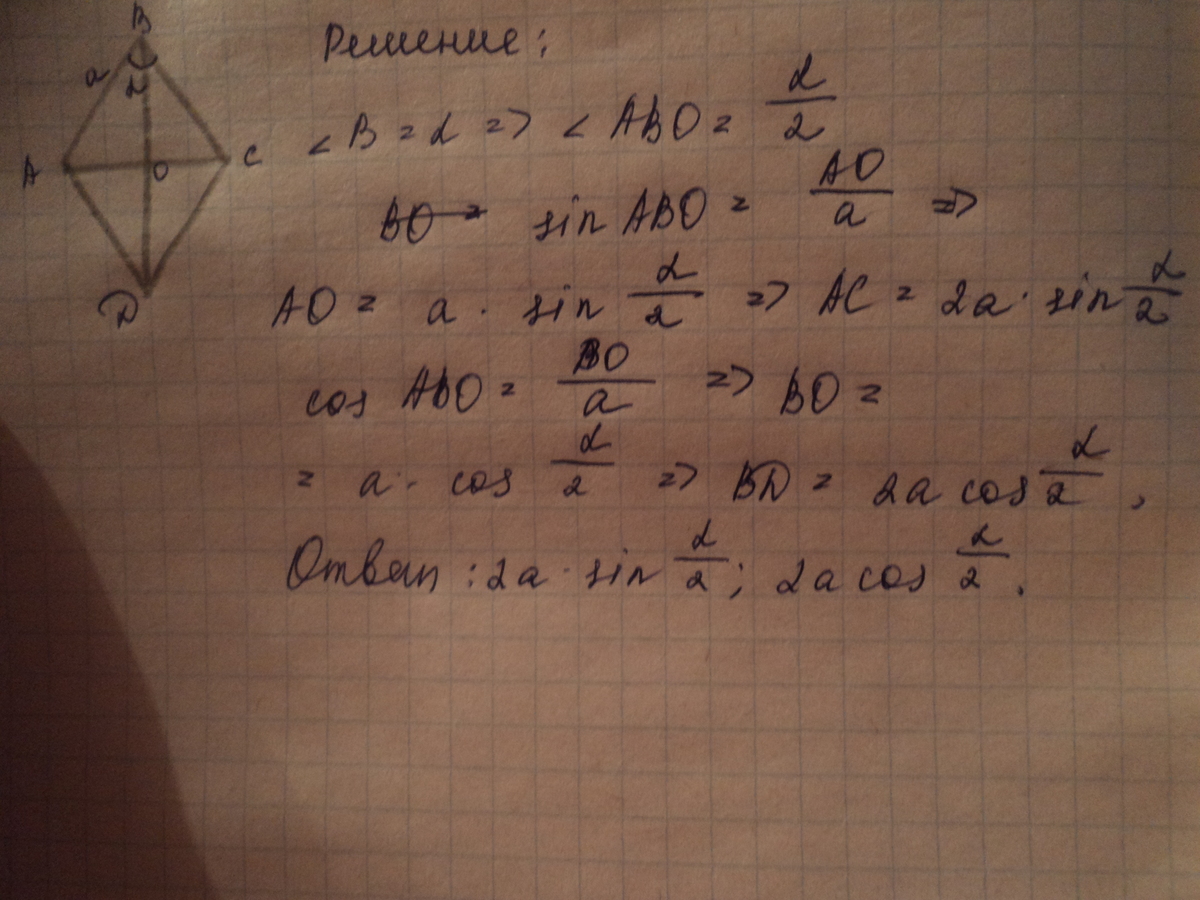 B
a
α
A
O
C
D
Решение:
∠B = α => ∠ABO = α/2
BO = sin ABO = AO/a =>
AO = a · sin α/2 => AC = 2a · sin α/2
cos ABO = BO/a => BO =
= a · cos α/2 => BD = 2a cos α/2,
Ответ: 2a · sin α/2; 2a cos α/2.